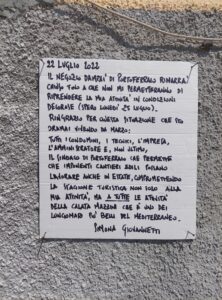 22 LUGLIO 2022
IL NEGOZIO DAMPAI' DI PORTOFERRAIO RIMARRA'
CHIUSO FINO A CHE NON MI PERMETTERANNO DI
RIPRENDERE LA MIA ATTIVITA' IN CONDIZIONI
DECOROSE (SPERO LUNEDI' 25 LUGLIO).
RINGRAZIO PER QUESTA SITUAZIONE CHE STO
VIVENDO DA MARZO:
TUTTI I CONDOMINI, I TECNICI, L'IMPRESA,
L'AMMINISTRATORE E, NON ULTIMO,
IL SINDACO DI PORTOFERRAIO CHE PERMETTE
CHE IMPONENTI CANTIERI EDILI POSSANO
LAVORARE ANCHE IN ESTATE, COMPROMETTENDO
LA STAGIONE TURISTICA NON SOLO ALLA
MIA ATTIVITA', MA A TUTTE LE ATTIVITA'
DELLA CALATA MAZZINI CHE E' UNO DEI
LUNGOMARI PIU' BELLI DEL MEDITERRANEO.
SIMONA GIOVANNETTI